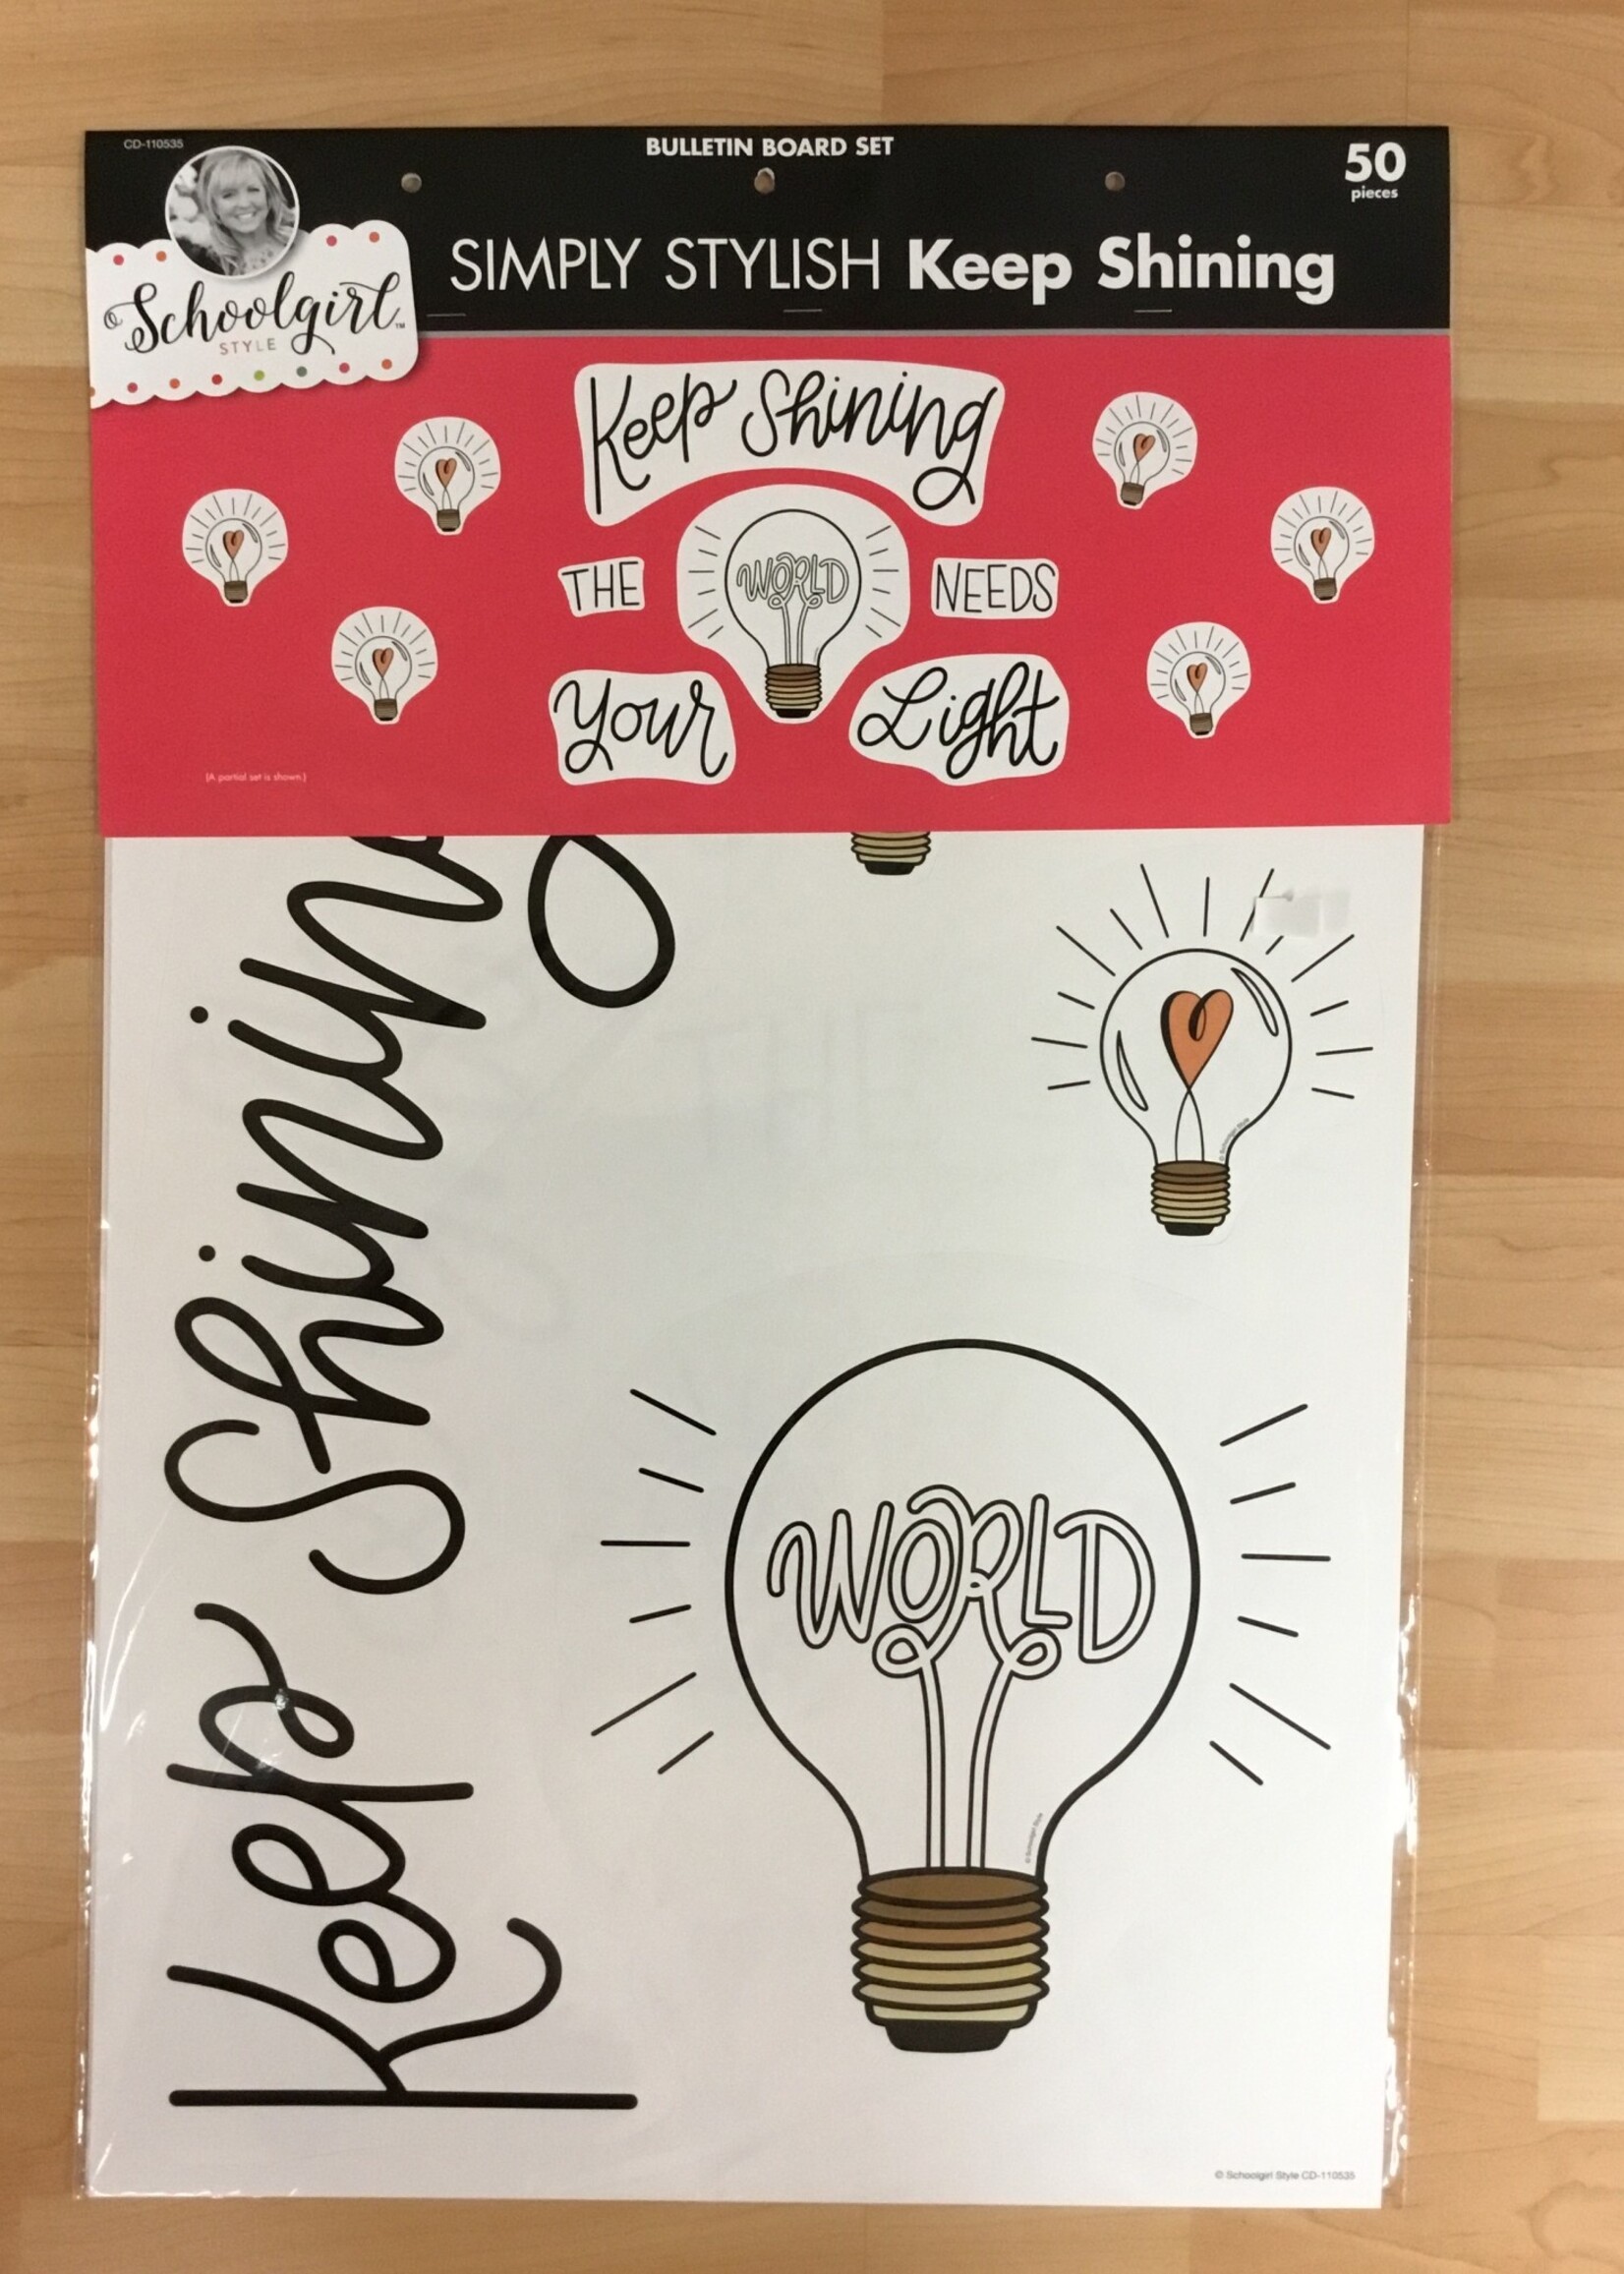 CD-110535
BULLETIN BOARD SET
50
pieces
SIMPLY STYLISH Keep Shining
Schoolgirl™
STYLE
Keep Shining
THE WORLD NEEDS
Your Light
(A partial set is shown.)
Keep Shining
© Schoolgirl Style
WORLD
© Schoolgirl Style
© Schoolgirl Style CD-110535